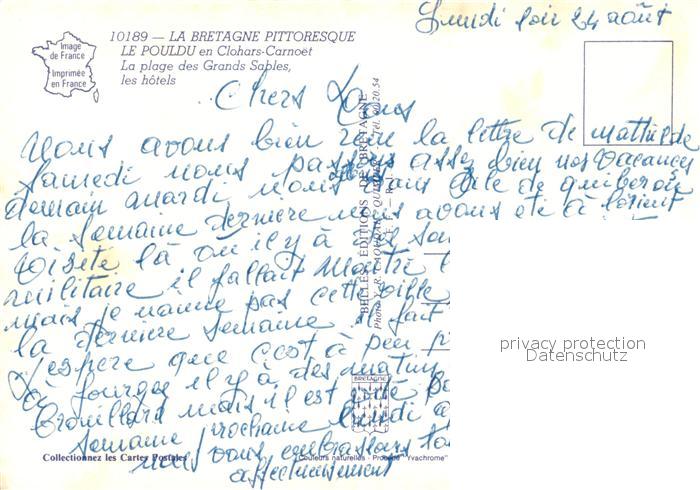 Lundi soir 24 août
10189 — LA BRETAGNE PITTORESQUE
LE POULDU en Clohars-Carnoët
La plage des Grands Sables,
les hôtels
Image
de France
Imprimée
en France
Chers
Nous avons bien reçu la lettre de Mathilde
Samedi nous passons assez bien nos Vacances
demain mardi nous dans l'île de quiberon
la semaine dernière nous avons été à lorient
Visité là où il y a les sou
militaire il fallait montré l
mais je n'aime pas cette ville
la dernière semaine fait
J'espère que c'est à peu p
à il y a des matins
Brouillard mais il est
Semaine prochaine lundi
nous vous embrassons
affectueusement
BELLES ÉDITIONS DE BRETAGNE
BRETAGNE
privacy protection
Datenschutz
Collectionnez les Cartes Postales
Couleurs naturelles - Procédé "Yvachrome"